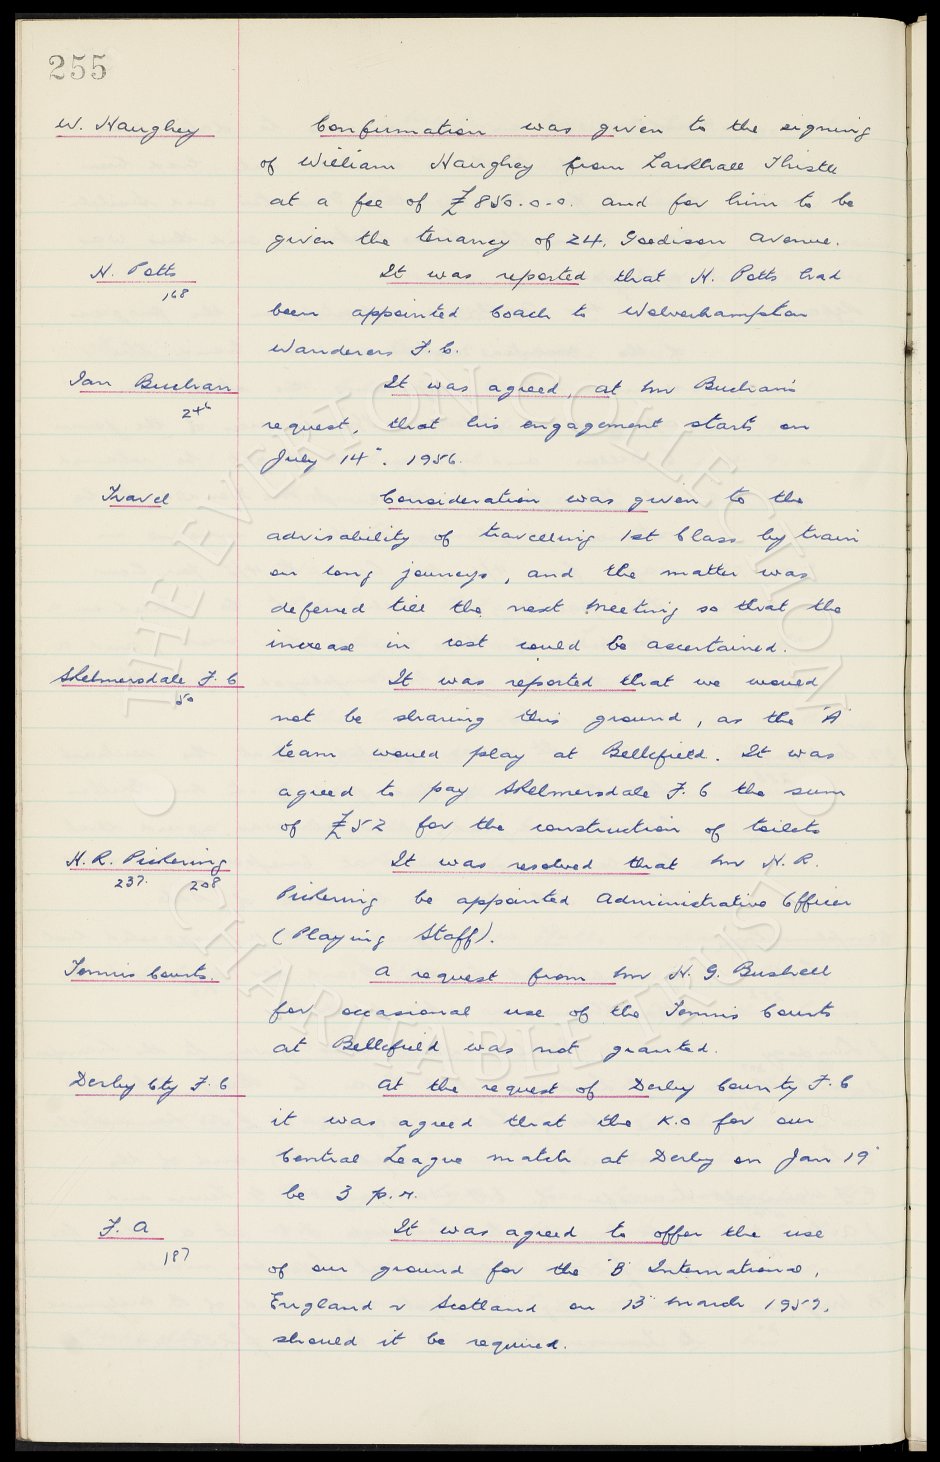 255
W. Haughey
Confirmation was given to the signing
of William Haughey from Larkhall Thistle
at a fee of £850.0.0. and for him to be
given the tenancy of 24, Goodison Avenue.
H. Potts
168
It was reported that H. Potts had
been appointed Coach to Wolverhampton
Wanderers F.C.
Ian Buchan
246
It was agreed, at Mr Buchan's
request, that his engagement starts on
July 14". 1956.
Travel
Consideration was given to the
advisability of travelling 1st Class by train
on long journeys, and the matter was
deferred till the next meeting so that the
increase in cost could be ascertained.
Skelmersdale F.C
50
It was reported that we would
not be sharing this ground, as the 'A'
team would play at Bellefield. It was
agreed to pay Skelmersdale F.C the sum
of £52 for the construction of toilets
H.R. Pickering
237. 208
It was resolved that Mr H.R.
Pickering be appointed Administrative Officer
(Playing Staff).
Tennis Courts.
A request from Mr H.G. Bushell
for occasional use of the Tennis Courts
at Bellefield was not granted.
Derby Cty F.C
At the request of Derby County F.C
it was agreed that the K.O for our
Central League match at Derby on Jan 19"
be 3 p.m.
F.A
187
It was agreed to offer the use
of our ground for the 'B' International,
England v Scotland on 13" March 1957,
should it be required.
THE EVERTON COLLECTION
CHARITABLE TRUST